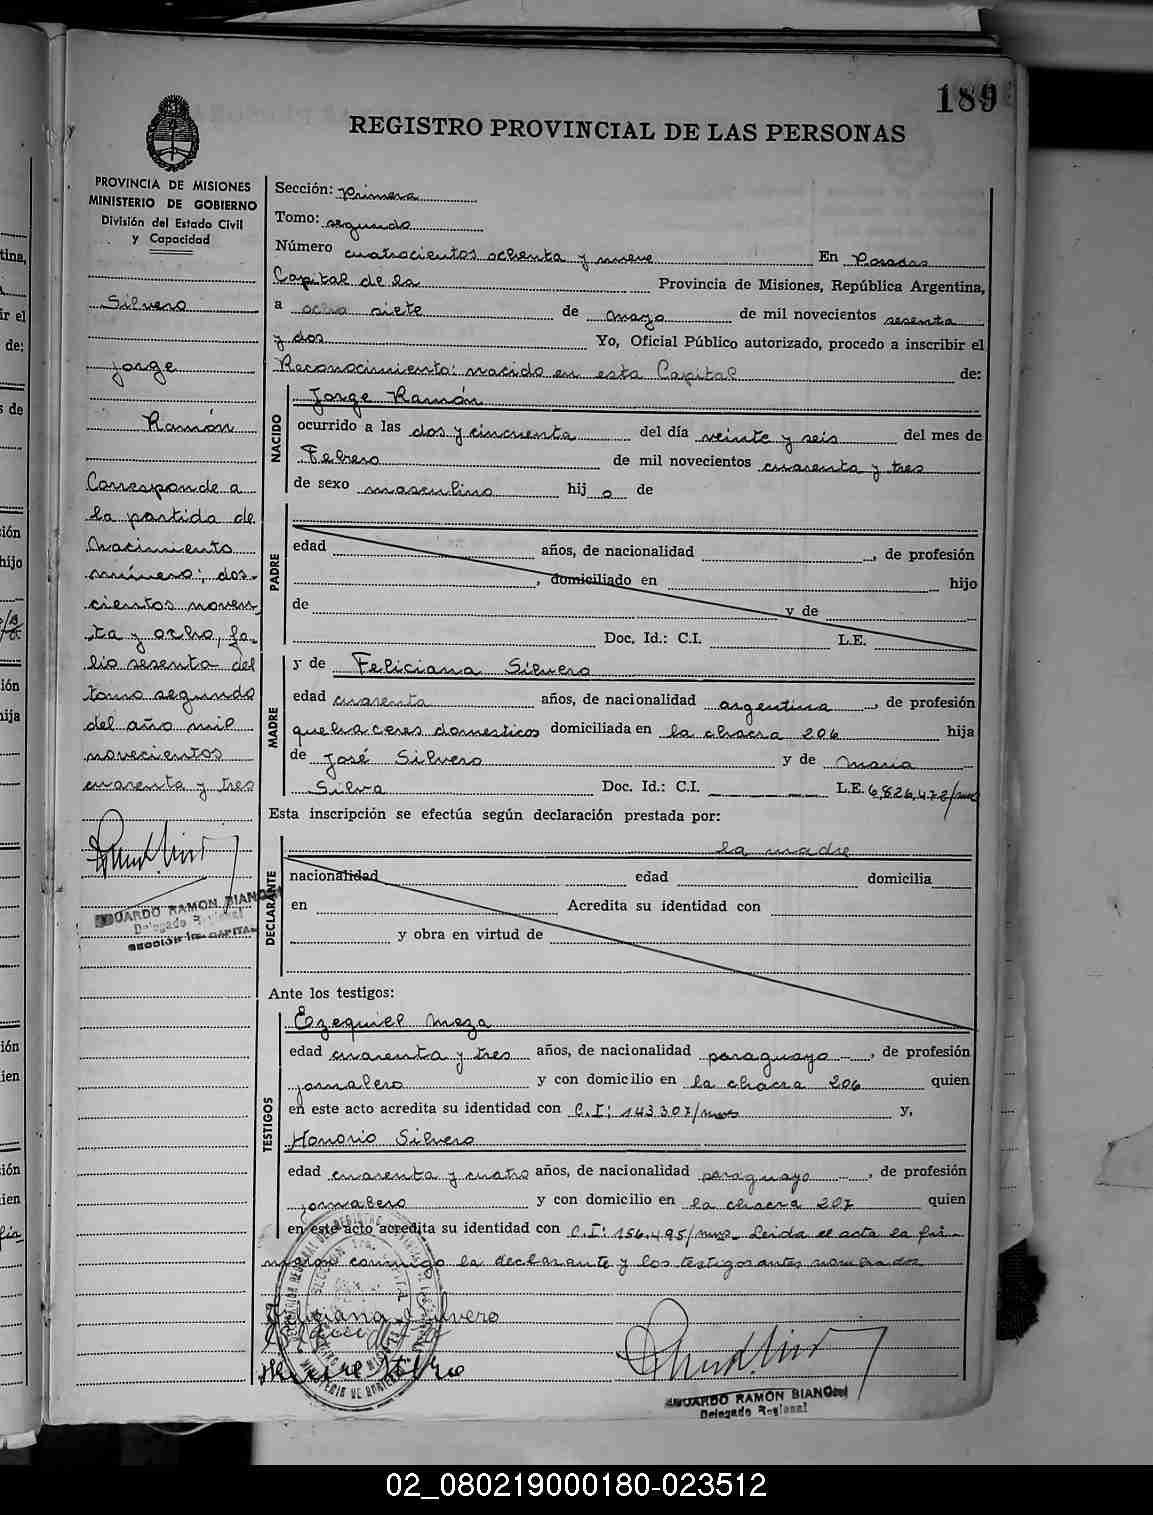 189
REGISTRO PROVINCIAL DE LAS PERSONAS
PROVINCIA DE MISIONES
MINISTERIO DE GOBIERNO
División del Estado Civil
y Capacidad
Silvero
Jorge
Ramón
Corresponde a
la partida de
Nacimiento
número: dos-
cientos noven-
ta y ocho, fo-
lio sesenta del
tomo segundo
del año mil
novecientos
cuarenta y tres
EDUARDO RAMON BIANCHI
Delegado Regional
SECCIÓN 1ra. CAPITAL
Sección: Primera
Tomo: segundo
Número cuatrocientos ochenta y nueve En Posadas
Capital de la Provincia de Misiones, República Argentina,
a ocho siete de mayo de mil novecientos sesenta
y dos Yo, Oficial Público autorizado, procedo a inscribir el
Reconocimiento: nacido en esta Capital de:
NACIDO
Jorge Ramón
ocurrido a las dos y cincuenta del día veinte y seis del mes de
Febrero de mil novecientos cuarenta y tres
de sexo masculino hij o de
PADRE
edad años, de nacionalidad , de profesión
, domiciliado en hijo
de y de
Doc. Id.: C.I. L.E.
MADRE
y de Feliciana Silvero
edad cuarenta años, de nacionalidad argentina , de profesión
quehaceres domesticos domiciliada en la chacra 206 hija
de José Silvero y de Maria
Silva Doc. Id.: C.I. L.E. 6,826,478/mnes
Esta inscripción se efectúa según declaración prestada por:
la madre
DECLARANTE
nacionalidad edad domicilia
en Acredita su identidad con
y obra en virtud de
Ante los testigos:
TESTIGOS
Ezequiel Meza
edad cuarenta y tres años, de nacionalidad paraguayo , de profesión
jornalero y con domicilio en la chacra 206 quien
en este acto acredita su identidad con C.I: 143307/mnes y,
Honorio Silvero
edad cuarenta y cuatro años, de nacionalidad paraguayo , de profesión
jornalero y con domicilio en la chacra 207 quien
en este acto acredita su identidad con C.I: 156,495/mnes. Leida el acta la fir-
maron conmigo la declarante y los testigos antes nombrados
Feliciana Silvero
EDUARDO RAMÓN BIANCHI
Delegado Regional
02_080219000180-023512